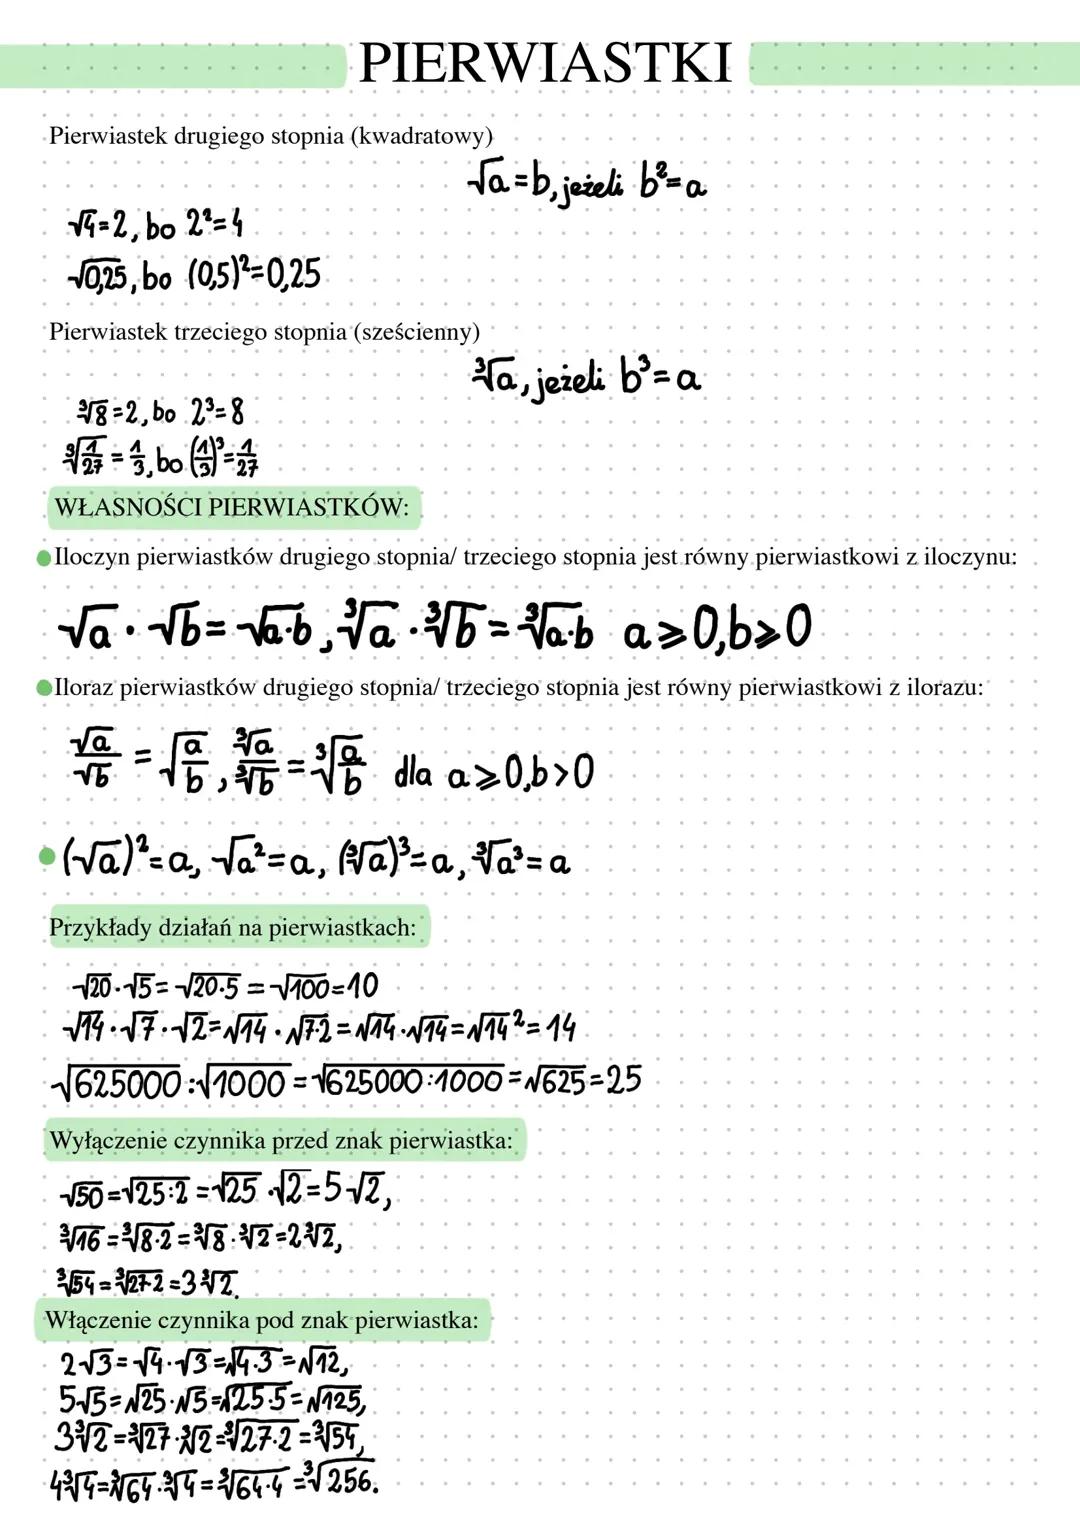 PIERWIASTKI
Pierwiastek drugiego stopnia (kwadratowy)
√a = b, jeżeli b²=a
√4=2, bo 2²=4
√0,25, bo (0,5)²=0,25
Pierwiastek trzeciego stopnia (sześcienny)
∛a, jeżeli b³=a
∛8=2, bo 2³=8
∛(1/27) = 1/3, bo (1/3)³=1/27
WŁASNOŚCI PIERWIASTKÓW:
Iloczyn pierwiastków drugiego stopnia/ trzeciego stopnia jest równy pierwiastkowi z iloczynu:
√a · √b = √(a·b), ∛a · ∛b = ∛(a·b) a⩾0, b⩾0
Iloraz pierwiastków drugiego stopnia/ trzeciego stopnia jest równy pierwiastkowi z ilorazu:
√a/√b = √(a/b), ∛a/∛b = ∛(a/b) dla a⩾0, b>0
(√a)²=a, √a²=a, (∛a)³=a, ∛a³=a
Przykłady działań na pierwiastkach:
√20·√5=√20·5=√100=10
√14·√7·√2=√14·√7·2=√14·√14=√14²=14
√625000:√1000=√625000:1000=√625=25
Wyłączenie czynnika przed znak pierwiastka:
√50=√25:2=√25·√2=5√2,
∛16=∛8·2=∛8·∛2=2∛2,
∛54=∛27·2=3∛2.
Włączenie czynnika pod znak pierwiastka:
2√3=√4·√3=√4·3=√12,
5√5=√25·√5=√25·5=√125,
3∛2=∛27·∛2=∛27·2=∛54,
4∛4=∛64·∛4=∛64·4=∛256.